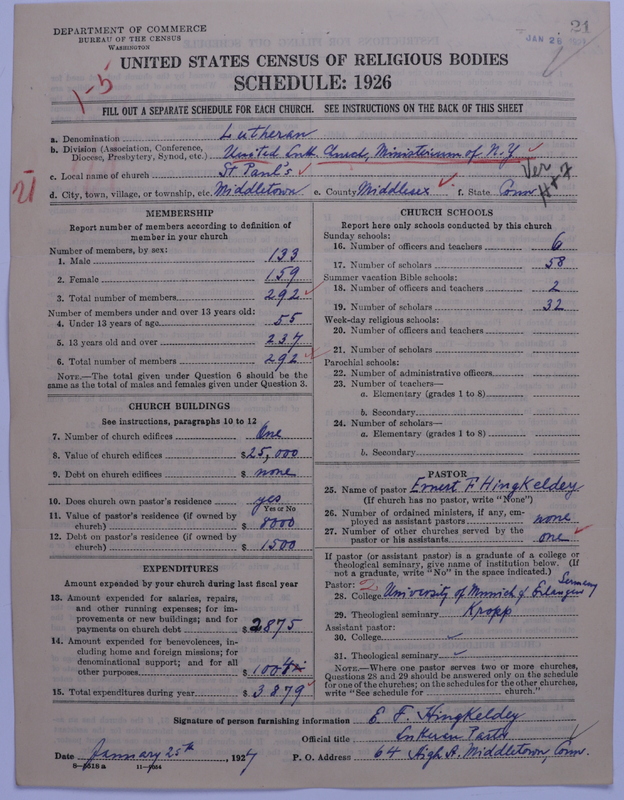 DEPARTMENT OF COMMERCE
BUREAU OF THE CENSUS
WASHINGTON
JAN 28
21
UNITED STATES CENSUS OF RELIGIOUS BODIES
SCHEDULE: 1926
1-5
FILL OUT A SEPARATE SCHEDULE FOR EACH CHURCH. SEE INSTRUCTIONS ON THE BACK OF THIS SHEET
a. Denomination Lutheran
b. Division (Association, Conference, Diocese, Presbytery, Synod, etc.) United Luth. Church, Ministerium of N.Y.
c. Local name of church St Paul's
Ver
21
d. City, town, village, or township, etc. Middletown e. County Middlesex f. State Conn
MEMBERSHIP
Report number of members according to definition of
member in your church
Number of members, by sex:
1. Male 133
2. Female 159
3. Total number of members 292
Number of members under and over 13 years old:
4. Under 13 years of age 55
5. 13 years old and over 237
6. Total number of members 292
NOTE.—The total given under Question 6 should be the
same as the total of males and females given under Question 3.
CHURCH BUILDINGS
See instructions, paragraphs 10 to 12
7. Number of church edifices One
8. Value of church edifices $25,000
9. Debt on church edifices $ none
10. Does church own pastor's residence yes
Yes or No
11. Value of pastor's residence (if owned by
church) $ 8000
12. Debt on pastor's residence (if owned by
church) $ 1500
EXPENDITURES
Amount expended by your church during last fiscal year
13. Amount expended for salaries, repairs,
and other running expenses; for im-
provements or new buildings; and for
payments on church debt $ 2875
14. Amount expended for benevolences, in-
cluding home and foreign missions; for
denominational support; and for all
other purposes $ 1004
15. Total expenditures during year $ 3879
CHURCH SCHOOLS
Report here only schools conducted by this church
Sunday schools:
16. Number of officers and teachers 6
17. Number of scholars 58
Summer vacation Bible schools:
18. Number of officers and teachers 2
19. Number of scholars 32
Week-day religious schools:
20. Number of officers and teachers
21. Number of scholars
Parochial schools:
22. Number of administrative officers
23. Number of teachers—
a. Elementary (grades 1 to 8)
b. Secondary
24. Number of scholars—
a. Elementary (grades 1 to 8)
b. Secondary
PASTOR
25. Name of pastor Ernest F Hingkeldey
(If church has no pastor, write "None")
26. Number of ordained ministers, if any, em-
ployed as assistant pastors none
27. Number of other churches served by the
pastor or his assistants one
If pastor (or assistant pastor) is a graduate of a college or
theological seminary, give name of institution below. (If
not a graduate, write "No" in the space indicated.)
Pastor: Germany
28. College University of Munich & Erlangen
29. Theological seminary Kropp
Assistant pastor:
30. College
31. Theological seminary
NOTE.—Where one pastor serves two or more churches,
Questions 28 and 29 should be answered only on the schedule
for one of the churches; on the schedules for the other churches,
write "See schedule for church."
Signature of person furnishing information E. F. Hingkeldey
Official title Pastor
Date January 25th, 1927 P. O. Address 64 High St. Middletown, Conn.